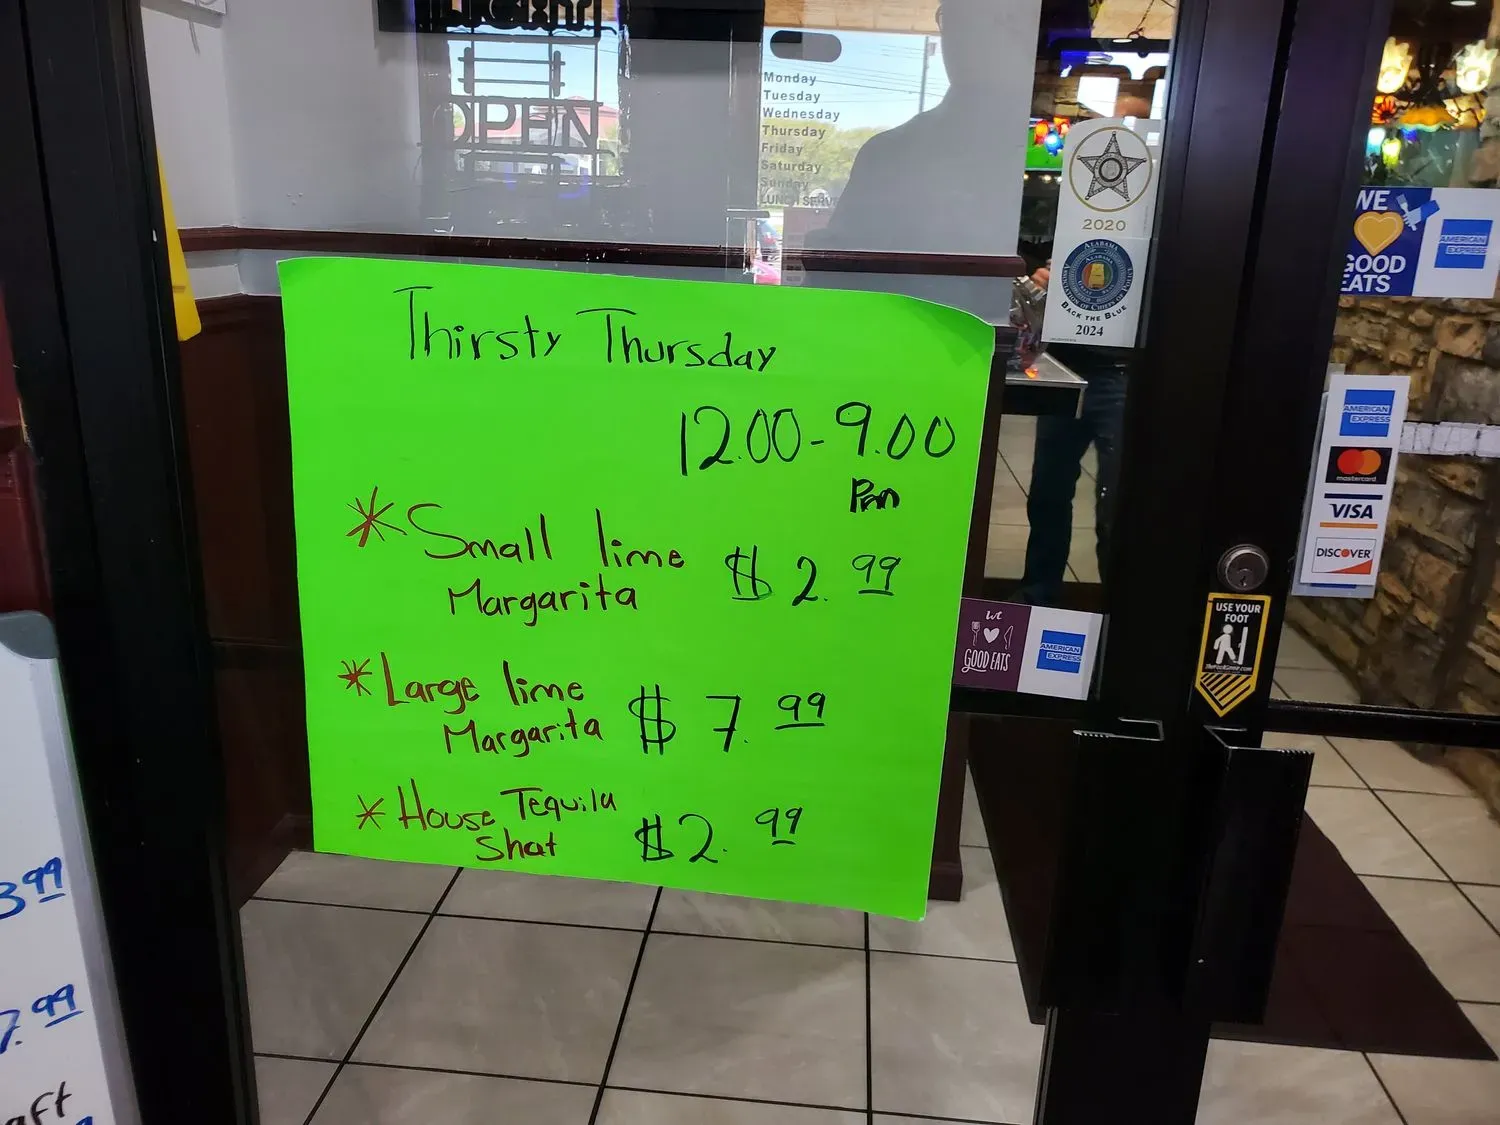 OPEN
Monday
Tuesday
Wednesday
Thursday
Friday
Saturday
Sunday
LUNCH
Thirsty Thursday
12.00-9.00
Pm
* Small lime $2.99
Margarita
* Large lime $7.99
Margarita
* House Tequila $2.99
Shot
2020
ALABAMA
BACK THE BLUE
2024
WE
GOOD
EATS
AMERICAN
EXPRESS
AMERICAN
EXPRESS
mastercard
VISA
DISCOVER
we
GOOD EATS
AMERICAN
EXPRESS
USE YOUR
FOOT
3.99
7.99